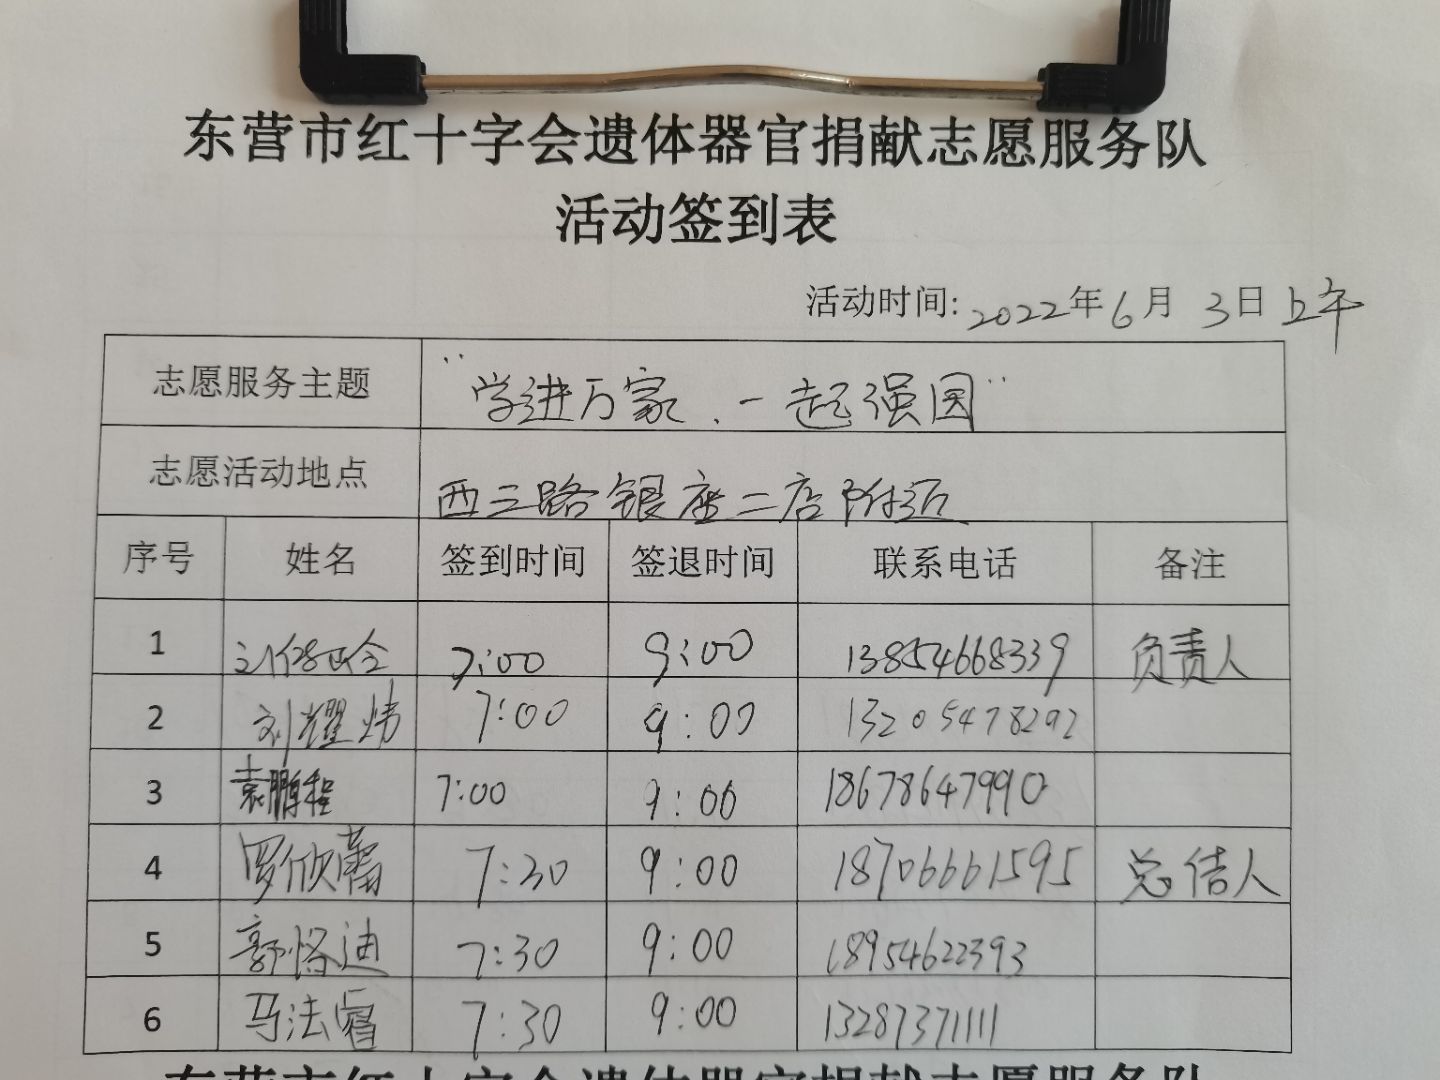 东营市红十字会遗体器官捐献志愿服务队
活动签到表
活动时间: 2022年6月3日上午
志愿服务主题 "学进万家.一起强国"
志愿活动地点 西三路银座二店附近
序号 姓名 签到时间 签退时间 联系电话 备注
1 7:00 9:00 13854668339 负责人
2 刘耀炜 7:00 9:00 13205478292
3 袁鹏程 7:00 9:00 18678647990
4 罗欣蕾 7:30 9:00 18706661595 总结人
5 郭恪迪 7:30 9:00 18954622393
6 马法睿 7:30 9:00 13287371111
东营市红十字会遗体器官捐献志愿服务队